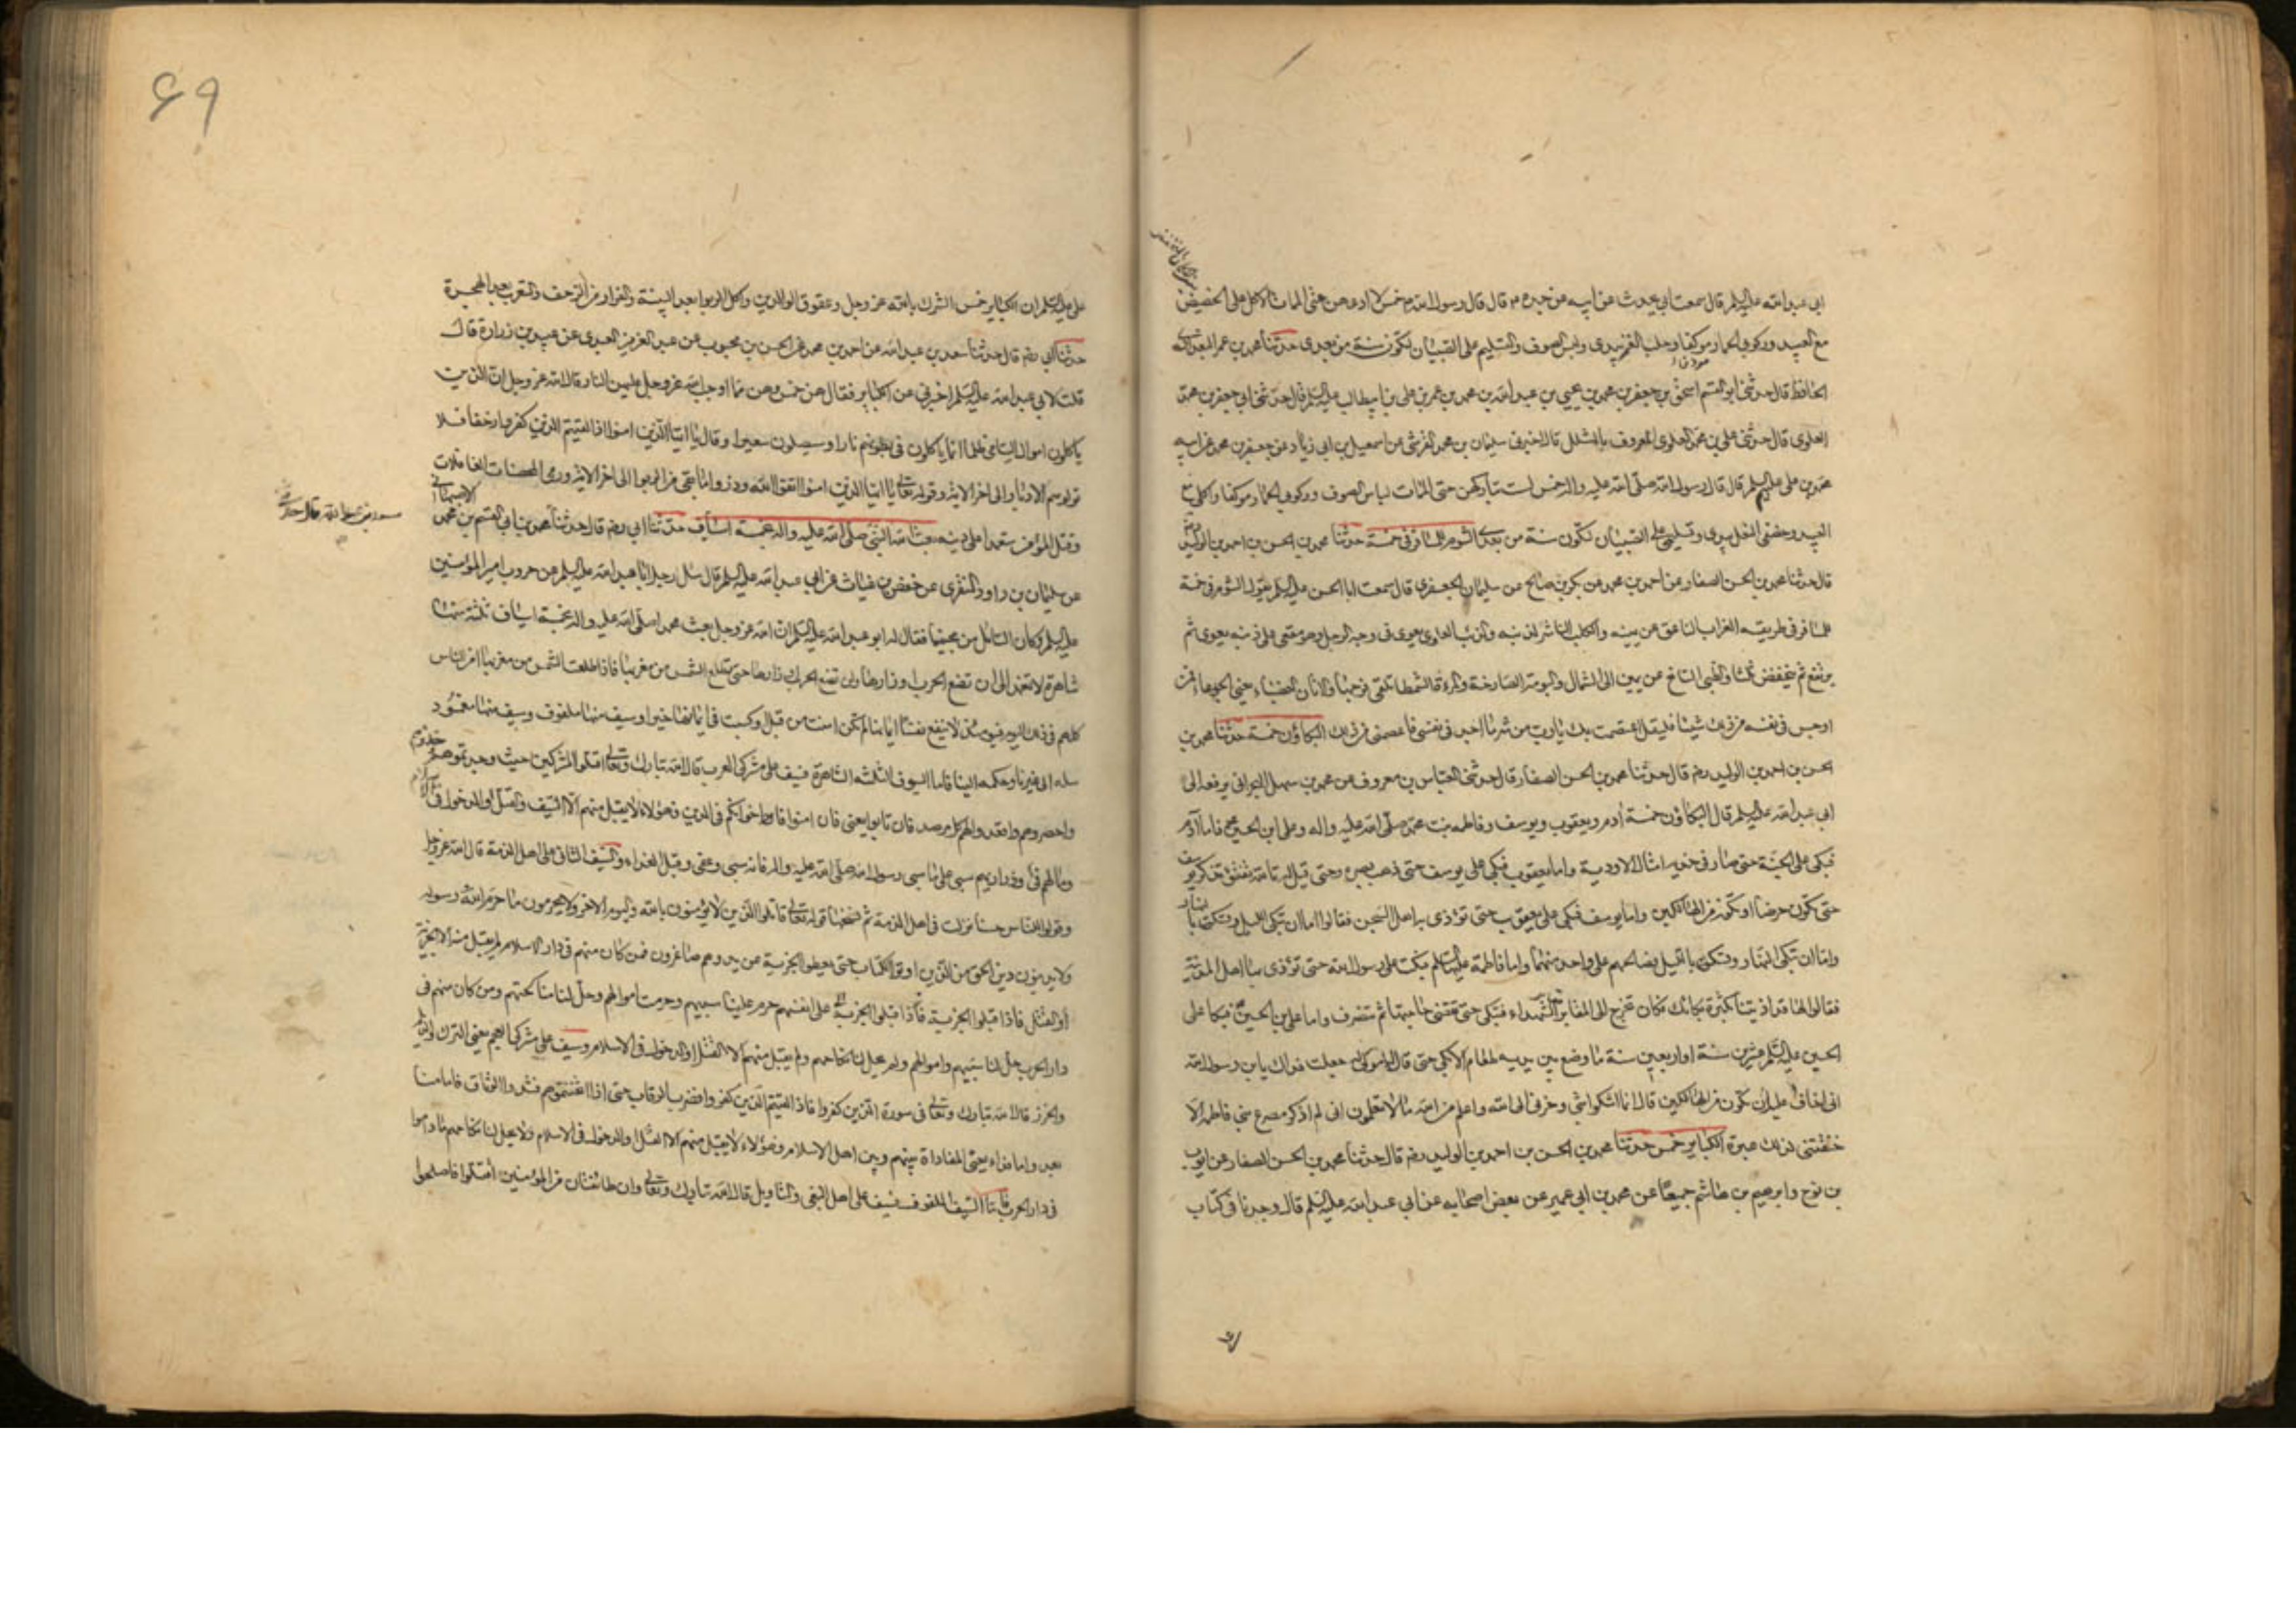 ابي عبد الله عليه السلم قال سمعت ابي يحدث عن ابيه عن جده م قال قال رسول الله ص خمس لا ادعهن حتى الممات الاكل على الحضيض
مع العبيد وركوبي الحمار موكفا وحلب العنز بيدى ولبس الصوف والتسليم على الصبيان لتكون سنة من بعدى حدثنا محمد بن عمر البغدادى
الحافظ قال حدثني ابو القسم اسحق بن جعفر بن محمد بن يحيى بن عبد الله بن محمد بن عمر بن على بن ابيطالب عليه السلم قال حدثني ابي جعفر بن محمد
العلوى قال حدثني على بن محمد العلوى المعروف بالمشلل قال اخبرني سليمان بن محمد القرشى عن اسمعيل بن ابي زياد عن جعفر بن محمد عن ابيه
محمد بن على عليهم السلم قال قال رسول الله صلى الله عليه واله خمس لست بتاركهن حتى الممات لباس الصوف وركوبي الحمار موكفا واكلى مع
العبيد وخصفى النعل بيدى وتسليمى على الصبيان لتكون سنة من بعدى الشوم للمسافر فى خمسة حدثنا محمد بن الحسن بن احمد بن الوليد
قال حدثنا محمد بن الحسن الصفار عن احمد بن محمد عن بكر بن صالح عن سليمان الجعفرى قال سمعت ابا الحسن عليه السلم يقول الشوم فى خمسة
للمسافر فى طريقه الغراب الناعق عن يمينه والكلب الناشر لذنبه والذئب العاوى يعوى فى وجه الرجل وهو مقعى على ذنبه يعوى ثم
يرتفع ثم ينخفض ثلثا والظبى السانح من يمين الى الشمال والبومة الصارخة والمرءة الشمطا تلقى فرجها والاتان العضباء يعنى الجدعاء فمن
اوجس فى نفسه من ذلك شيئا فليقل اعتصمت بك يا رب من شر ما اجد فى نفسى فاعصمنى من ذلك البكاؤن خمسة حدثنا محمد بن
الحسن بن احمد بن الوليد رضه قال حدثنا محمد بن الحسن الصفار قال حدثني العباس بن معروف عن محمد بن سهل البحرانى يرفعه الى
ابي عبد الله عليه السلم قال البكاؤن خمسة ادم ويعقوب ويوسف وفاطمه بنت محمد صلى الله عليه واله وعلى ابن الحسين ع فاما ادم
فبكى على الجنة حتى صار فى خديه امثال الاودية واما يعقوب فبكى على يوسف حتى ذهب بصره وحتى قيل له تالله تفتؤ تذكر يوسف
حتى تكون حرضا او تكون من الهالكين واما يوسف فبكى على يعقوب حتى تؤذى به اهل السجن فقالوا اما ان تبكى الليل وتسكت بالنهار
واما ان تبكى النهار وتسكت بالليل فصالحهم على واحد منهما واما فاطمة عليها السلم فبكت على رسول الله حتى تؤذى بها اهل المدينة
فقالوا لها قد اذيتنا بكثرة بكائك فكانت تخرج الى المقابر الشهداء فتبكى حتى تقضى حاجتها ثم تنصرف واما على بن الحسين ع فبكا على
الحسين عليه السلم عشرين سنة او اربعين سنة ما وضع بين يديه طعام الا بكى حتى قال له مولى له جعلت فداك يا بن رسول الله
انى اخاف عليك ان تكون من الهالكين قال انما اشكوا بثى وحزنى الى الله واعلم من الله ما لا تعلمون انى لم اذكر مصرع بنى فاطمة الا
خنقتنى لذلك عبرة الكباير خمس حدثنا محمد بن الحسن بن احمد بن الوليد رضه قال حدثنا محمد بن الحسن الصفار عن ايوب
بن نوح وابرهيم بن هاشم جميعا عن محمد بن ابى عمير عن بعض اصحابه عن ابى عبد الله عليه السلم قال وجدنا فى كتاب
۶۹
على عليه السلم ان الكباير خمس الشرك بالله عز وجل وعقوق الوالدين واكل الربوا بعد البينة والفرار من الزحف والتعرب بعد الهجرة
حدثنا ابي رضه قال حدثنا سعد بن عبد الله عن احمد بن محمد عن الحسن بن محبوب عن عبد العزيز العبدى عن عبيد بن زرارة قال
قلت لابي عبد الله عليه السلم اخبرنى عن الكباير فقال هن خمس وهن مما اوجب الله عز وجل عليهن النار قال الله عز وجل ان الذين
ياكلون اموال اليتامى ظلما انما ياكلون فى بطونهم نارا وسيصلون سعيرا وقال يا ايها الذين امنوا اذا لقيتم الذين كفروا زحفا فلا
تولوهم الادبار الى اخر الاية وقوله تعالى يا ايها الذين امنوا اتقوا الله وذروا ما بقى من الربوا الى اخر الاية ورمى المحصنات الغافلات
وقتل المؤمن متعمدا على دينه بعث الله النبى صلى الله عليه واله بخمسة اسياف حدثنا ابي رضه قال حدثنا محمد بن ابي القسم بن محمد الاصبهانى
عن سليمان بن داود المنقرى عن حفص بن غياث عن ابي عبد الله عليه السلم قال سال رجل ابا عبد الله عليه السلم عن حروب امير المؤمنين
عليه السلم وكان السائل من محبينا فقال له ابو عبد الله عليه السلم ان الله عز وجل بعث محمدا صلى الله عليه واله بخمسة اسياف ثلثة منها
شاهرة لا تغمد الى ان تضع الحرب اوزارها ولن تضع الحرب اوزارها حتى تطلع الشمس من مغربها فاذا طلعت الشمس من مغربها امن الناس
كلهم فى ذلك اليوم فيومئذ لا ينفع نفسا ايمانها لم تكن امنت من قبل او كسبت فى ايمانها خيرا وسيف منها ملفوف وسيف منها مغمود
سله الى غيرنا وحكمه الينا فاما السيوف الثلثه الشاهرة فسيف على مشركى العرب قال الله تبارك وتعالى اقتلوا المشركين حيث وجدتموهم وخذوهم
واحصروهم واقعدوا لهم كل مرصد فان تابوا يعنى فان امنوا فاخوانكم فى الدين فهؤلاء لا يقبل منهم الا السيف والقتل او الدخول فى الاسلام
ومالهم فئ وذراريهم سبى على ما سبى رسول الله صلى الله عليه واله فانه سبى وعفى وقبل الفداء والسيف الثانى على اهل الذمة قال الله عز وجل
وقولوا للناس حسنا نزلت فى اهل الذمة ثم نسخها قوله تعالى قاتلوا الذين لا يؤمنون بالله ولا باليوم الاخر ولا يحرمون ما حرم الله ورسوله
ولا يدينون دين الحق من الذين اوتوا الكتاب حتى يعطوا الجزية عن يد وهم صاغرون فمن كان منهم فى دار الاسلام لم يقبل منه الا الجزية
او القتل فاذا قبلوا الجزية على انفسهم حرم علينا سبيهم وحرمت اموالهم وحل لنا مناكحتهم ومن كان منهم فى
دار الحرب حل لنا سبيهم واموالهم ولم يحل لنا نكاحهم ولم يقبل منهم الا القتل او الدخول فى الاسلام وسيف على مشركى العجم يعنى الترك والديلم
والخزر قال الله تبارك وتعالى فى سورة الذين كفروا فاذا لقيتم الذين كفروا فضرب الرقاب حتى اذا اثخنتموهم فشدوا الوثاق فاما منا
بعد واما فداء يعنى المفاداة بينهم وبين اهل الاسلام فهؤلاء لا يقبل منهم الا القتل او الدخول فى الاسلام ولا يحل لنا نكاحهم ما داموا
فى دار الحرب واما السيف الملفوف فسيف على اهل البغى والتاويل قال الله تبارك وتعالى وان طائفتان من المؤمنين اقتتلوا فاصلحوا